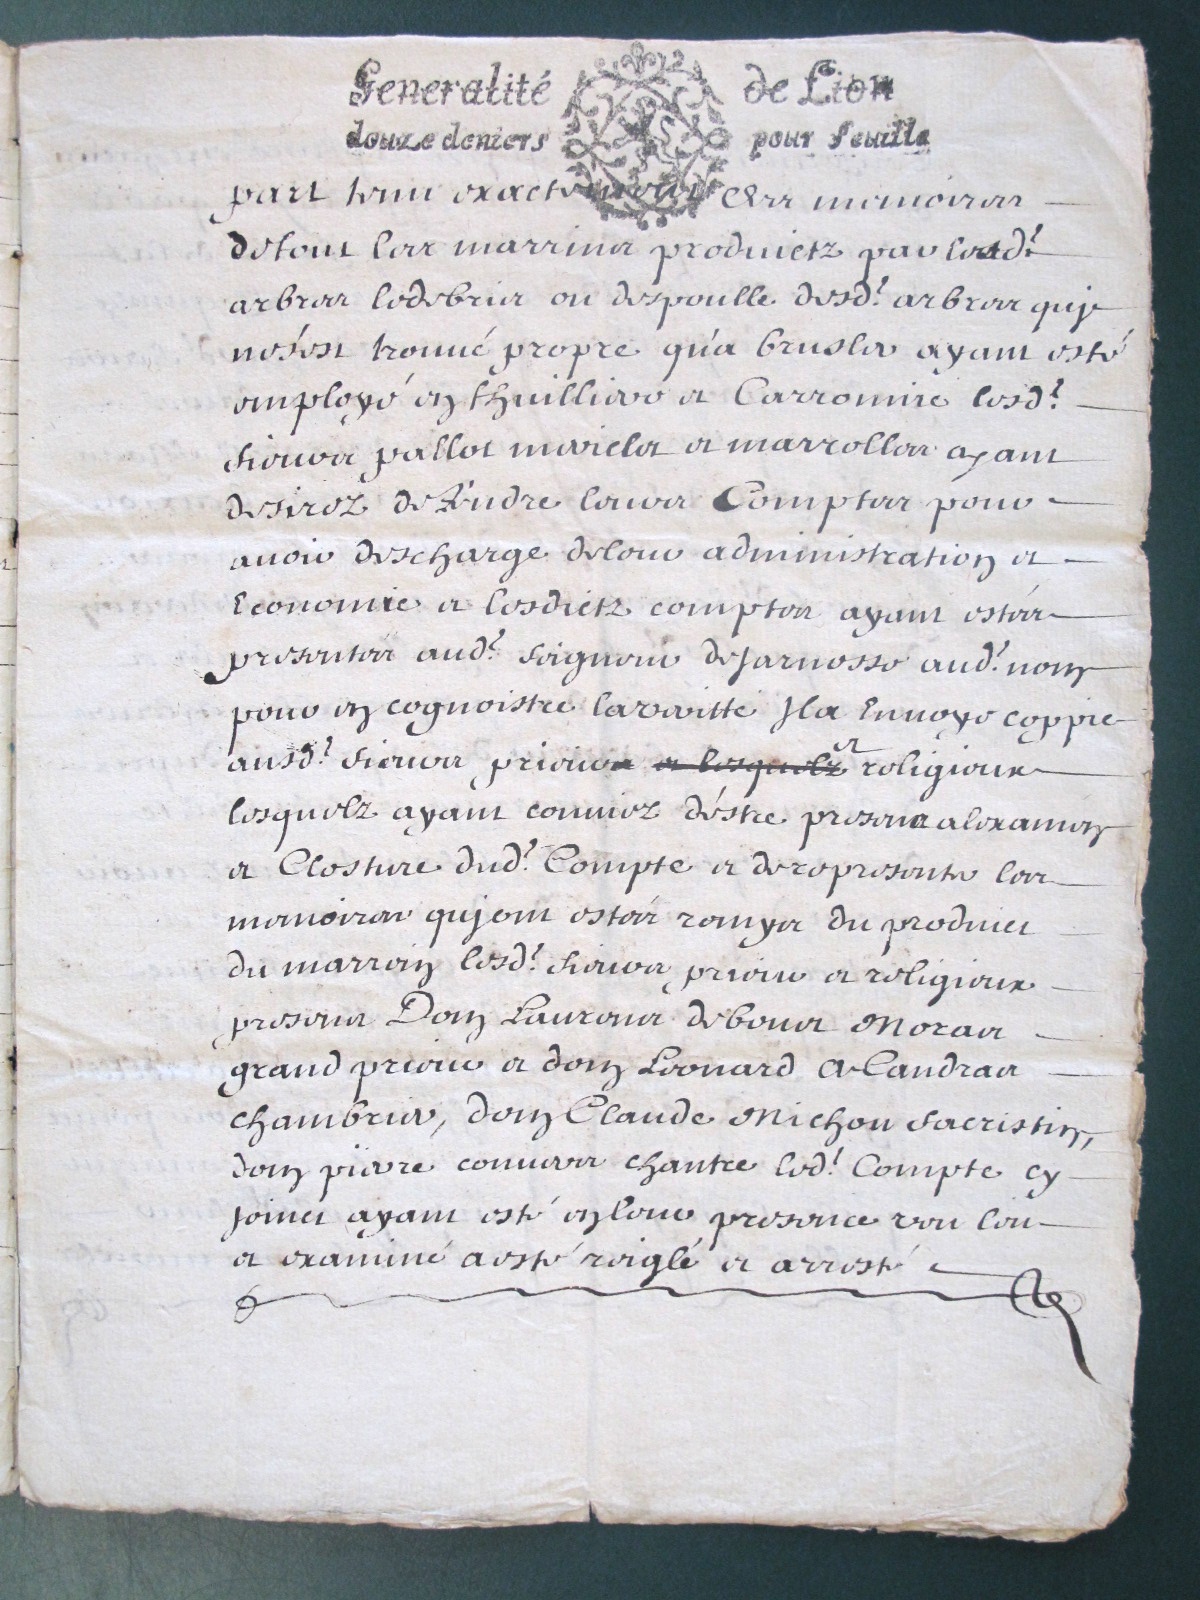 Generalité de Lion
douze deniers pour feuille
part tenu exactement des memoires
de tout les marrins produictz par lesd.
arbres le debris ou despoulle desd. arbres quy
ne sest trouvé propre qu'a brusler ayant esté
employé en thuilliere et Carronnire lesd.
sieurs pallot mviclet et marrolles ayant
desirez de Rendre leurs Comptes pour
avoir descharge de leur administration et
Economie et lesdictz comptes ayant estés
presentés aud. seigneur de Jarnosse aud. nom
pour en cognoistre la veritté Il a Envoyé coppie
ausd. sieurs prieur et religieux
lesquelz ayant conviez d'éstre presens a lexamen
et Closture dud. Compte et de representer les
memoires quj ont estés remys du produict
du marrein lesd. sieurs prieur et religieux
presens Dom Laurans de bonet Moras
grand prieur et dom Leonard
chambrier, dom Claude Michon sacristin,
dom pierre chantre led. Compte cy
joinct ayant esté en leur presence veu leu
et examiné a esté reiglé et arresté